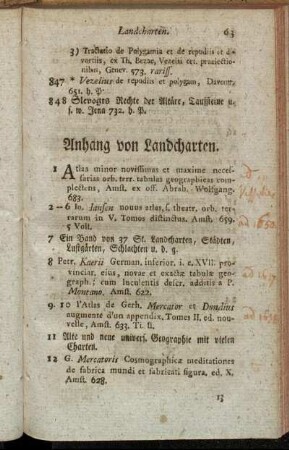 Landcharten. 63
3) Tractatio de Polygamia et de repudiis et di-
vortiis, ex Th. Bezae, Vezelii cet. praelectio-
nibus, Genev. 573. rariss.
847 * Vezelius de repudiis et polygam, Davent.
651. h. P.
848 Slevogts Rechte der Altäre, Taufsteine u.
s. w. Jena 732. h. P.
Anhang von Landcharten.
1 Atlas minor novissimus et maxime neces-
sarias orb. terr. tabulas geographicas com-
plectens, Amst. ex off. Abrah. Wolfgang.
683.
2-6 Io. Iansson nouus atlas, s. theatr. orb. ter-
rarum in V. Tomos distinctus. Amst. 659.
5 Voll.
7 Ein Band von 37 St. Landcharten, Städten,
Lustgärten, Schlachten u. d. g.
8 Petr. Kaerii German. inferior. i. e. XVII. pro-
vinciar. eius, novae et exactae tabulae geo-
graph.; cum luculentis descr. additis a P.
Montano. Amst. 622.
9. 10 l'Atlas de Gerh. Mercator et Hondius
augmente d'un appendix, Tomes II. ed. nou-
velle, Amst. 633. Tt. II.
11 Alte und neue univers. Geographie mit vielen
Charten.
12 G. Mercatoris Cosmographicae meditationes
de fabrica mundi et fabricati figura. ed. X.
Amst. 628.
13